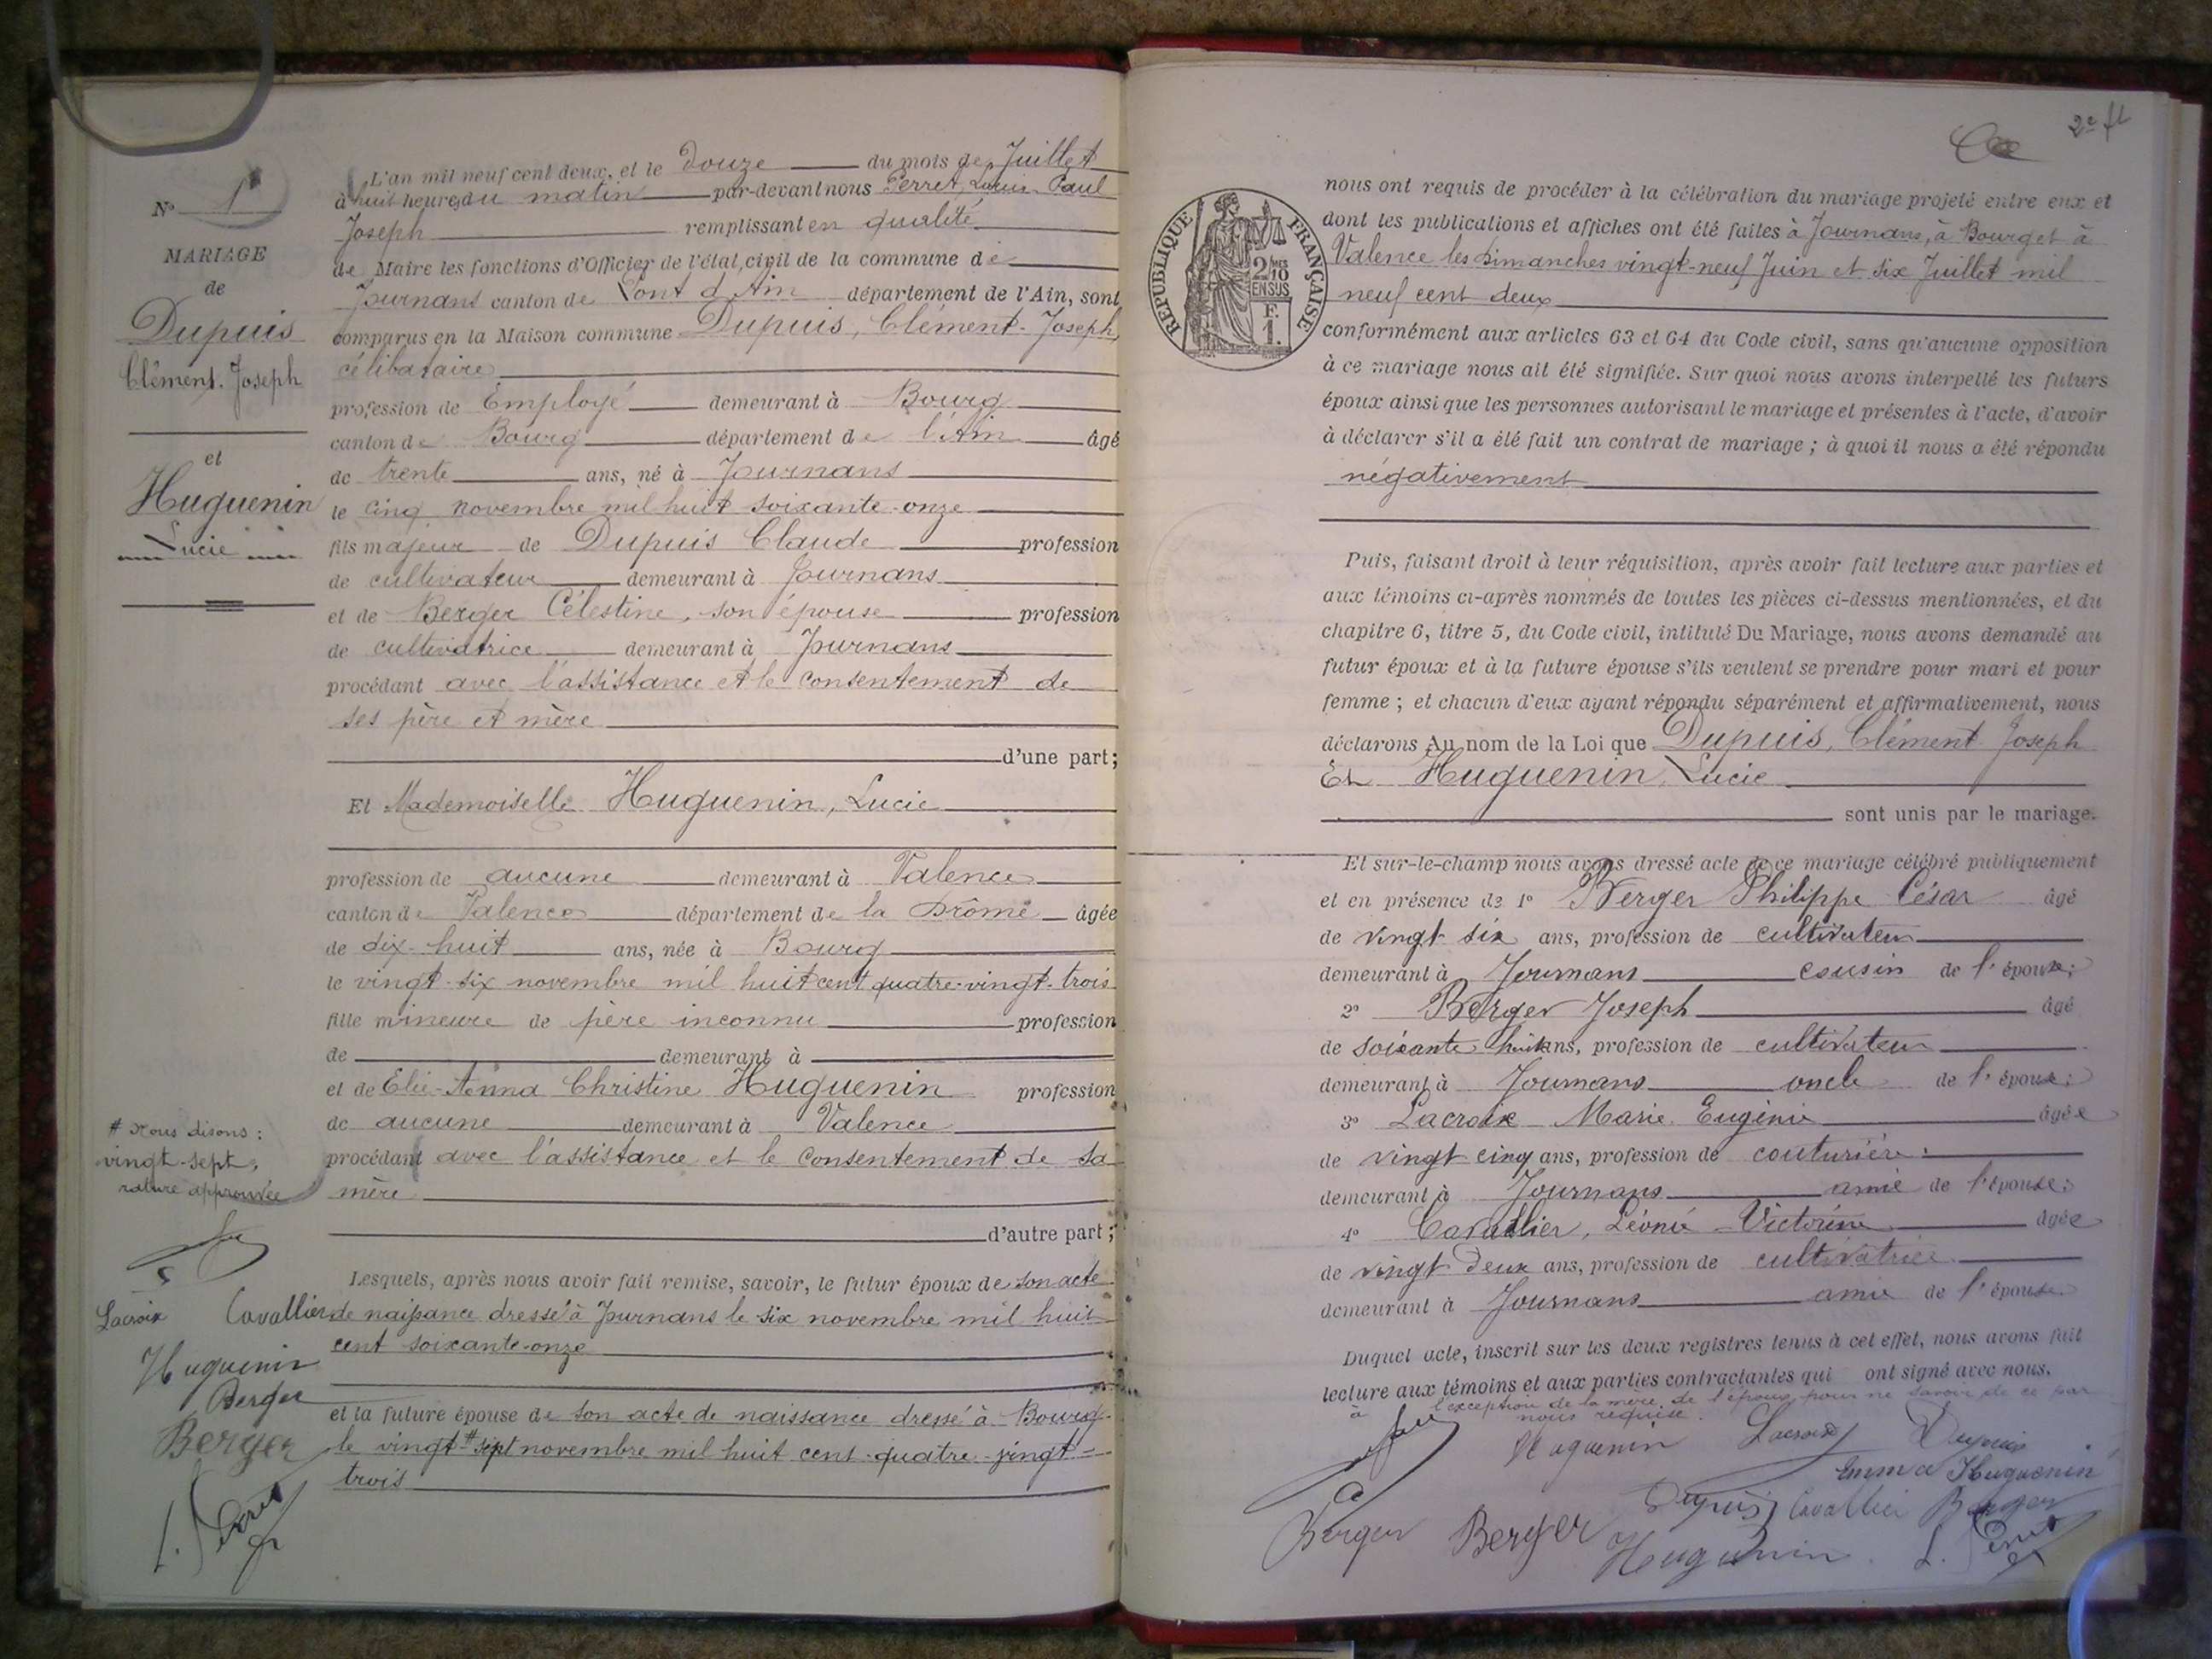 N° 1
MARIAGE
de
Dupuis
Clément-Joseph
et
Huguenin
Lucie
L'an mil neuf cent deux, et le douze du mois de Juillet
à huit heures du matin par-devant nous Perret, Louis Paul
Joseph remplissant en qualité
de Maire les fonctions d'Officier de l'état civil de la commune de
Journans canton de Pont d'Ain département de l'Ain, sont
comparus en la Maison commune Dupuis, Clément-Joseph,
célibataire
profession de Employé demeurant à Bourg
canton de Bourg département de l'Ain âgé
de trente ans, né à Journans
le cinq novembre mil huit soixante-onze
fils majeur de Dupuis Claude profession
de cultivateur demeurant à Journans
et de Berger Célestine, son épouse profession
de cultivatrice demeurant à Journans
procédant avec l'assistance et le consentement de
ses père et mère
d'une part;
Et Mademoiselle Huguenin, Lucie
profession de aucune demeurant à Valence
canton de Valence département de la Drôme âgée
de dix-huit ans, née à Bourg
le vingt-six novembre mil huit cent quatre-vingt-trois
fille mineure de père inconnu profession
de demeurant à
et de Elie-Anna Christine Huguenin profession
de aucune demeurant à Valence
procédant avec l'assistance et le consentement de sa
mère
d'autre part;
Lesquels, après nous avoir fait remise, savoir, le futur époux de son acte
de naissance dressé à Journans le six novembre mil huit
cent soixante-onze
et la future épouse de son acte de naissance dressé à Bourg
le vingt # sept novembre mil huit cent quatre-vingt-
trois
# Nous disons:
vingt-sept,
rature approuvée
Lacroix Cavallier
Huguenin
Berger
Berger
L. Perret
2e ft
REPUBLIQUE FRANÇAISE
2/10 MES
EN SUS
F.
1.
nous ont requis de procéder à la célébration du mariage projeté entre eux et
dont les publications et affiches ont été faites à Journans, à Bourg et à
Valence les dimanches vingt-neuf Juin et six Juillet mil
neuf cent deux
conformément aux articles 63 et 64 du Code civil, sans qu'aucune opposition
à ce mariage nous ait été signifiée. Sur quoi nous avons interpellé les futurs
époux ainsi que les personnes autorisant le mariage et présentes à l'acte, d'avoir
à déclarer s'il a été fait un contrat de mariage; à quoi il nous a été répondu
négativement
Puis, faisant droit à leur réquisition, après avoir fait lecture aux parties et
aux témoins ci-après nommés de toutes les pièces ci-dessus mentionnées, et du
chapitre 6, titre 5, du Code civil, intitulé Du Mariage, nous avons demandé au
futur époux et à la future épouse s'ils veulent se prendre pour mari et pour
femme; et chacun d'eux ayant répondu séparément et affirmativement, nous
déclarons Au nom de la Loi que Dupuis, Clément Joseph
Et Huguenin, Lucie
sont unis par le mariage.
Et sur-le-champ nous avons dressé acte de ce mariage célébré publiquement
et en présence de 1° Berger Philippe César âgé
de vingt six ans, profession de cultivateur
demeurant à Journans cousin de l'époux;
2° Berger Joseph âgé
de soixante huit ans, profession de cultivateur
demeurant à Journans oncle de l'époux;
3° Lacroix Marie Eugénie âgée
de vingt cinq ans, profession de couturière
demeurant à Journans amie de l'épouse;
4° Cavallier, Léonie Victorine âgée
de vingt deux ans, profession de cultivatrice
demeurant à Journans amie de l'épouse.
Duquel acte, inscrit sur les deux registres tenus à cet effet, nous avons fait
lecture aux témoins et aux parties contractantes qui ont signé avec nous.
à l'exception de la mère de l'époux pour ne savoir de ce par
nous requise.
Huguenin Lacroix Dupuis
Emma Huguenin
Dupuis Cavallier Berger
Berger Berger Huguenin L. Perret